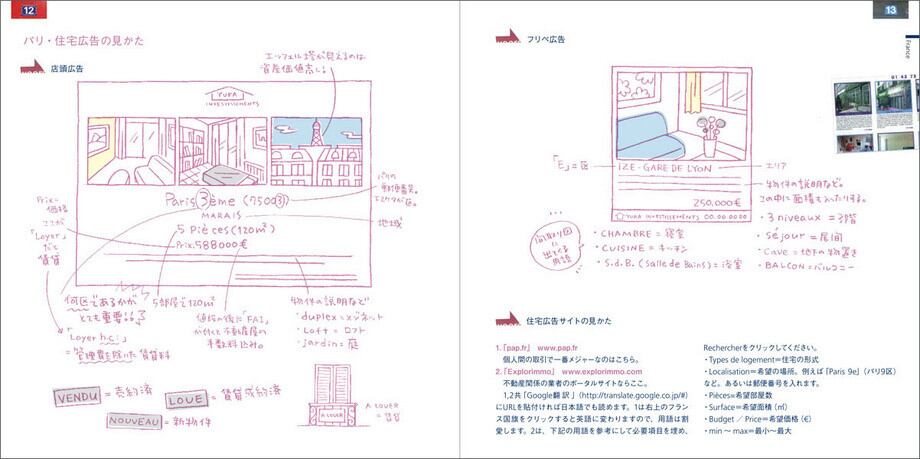 12
パリ・住宅広告の見かた
店頭広告
エッフェル塔が見えるのは
資産価値高し。
YUKA
INVESTISSEMENTS
Prix=
価格
ここが
「Loyer」
だと
賃貸
Paris 3ème (75003)
MARAIS
5 Pièces (120㎡)
Prix.588000€
パリの
郵便番号。
地域
何区であるかが
とても重要!!
5部屋で120㎡
値段の後に「FAI」
が付くと不動産屋の
手数料込み。
物件の説明など
・duplex=メゾネット
・Loft=ロフト
・jardin=庭
「Loyer h.c.」
=管理費を除いた賃貸料
VENDU=売約済
LOUE=賃貸成約済
NOUVEAU=新物件
A LOUER
A LOUER
=賃貸
13
France
フリペ広告
「E」=区
12E-GARE DE LYON
エリア
250,000€
YUKA INVESTISSEMENTS 00.00.00.00
物件の説明など。
この中に面積も入ったりする。
間取り図
に
出てくる
用語
・CHAMBRE=寝室
・CUISINE=キッチン
・S.d.B.(Salle de Bains)=浴室
・3 niveaux=3階
・Séjour=居間
・Cave=地下の物置き
・BALCON=バルコニー
01 43 73
住宅広告サイトの見かた
1.「pap.fr」 www.pap.fr
個人間の取引で一番メジャーなのはこちら。
2.「Explorimmo」 www.explorimmo.com
不動産関係の業者のポータルサイトならここ。
1,2共「Google翻訳」(http://translate.google.co.jp/#)
にURLを貼付ければ日本語でも読めます。1は右上のフラン
ス国旗をクリックすると英語に変わりますので、用語は割
愛します。2は、下記の用語を参考にして必要項目を埋め、
Rechercherをクリックしてください。
・Types de logement=住宅の形式
・Localisation=希望の場所。例えば「Paris 9e」(パリ9区)
など。あるいは郵便番号を入れます。
・Pièces=希望部屋数
・Surface=希望面積(㎡)
・Budget / Price=希望価格(€)
・min ~ max=最小~最大